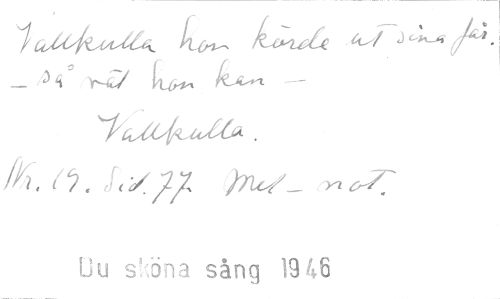 Vallkulla hon körde ut sina får.
– så vät hon kan –
Vallkulla.
Nr. 19. Sid. 77. Mel – not.
Du sköna sång 1946